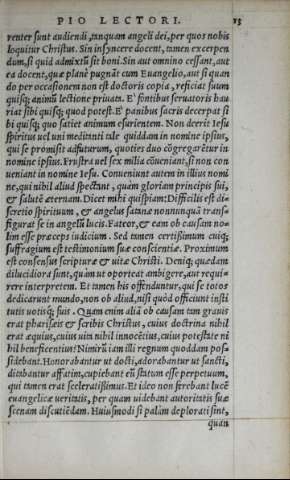 PIO LECTORI. 13
renter sunt audiendi, tanquam angeli dei, per quos nobis
loquitur Christus. Sin insyncere docent, tamen excerpen
dum, si quid admixtũ sit boni. Sin aut omnino cessant, aut
ea docent, quæ planè pugnãt cum Euangelio, aut si quan
do per occasionem non est doctoris copia, reficiat suum
quisq; animũ lectione priuata. E' fontibus seruatoris hau
riat sibi quisq; quod potest. E' panibus sacris decerpat si
bi quisq; quo satiet animum esurientem. Non deerit Iesu
spiritus uel uni meditanti tale quiddam in nomine ipsius,
qui se promisit adfuturum, quoties duo cõgregarẽtur in
nomine ipsius. Frustra uel sex milia cõueniant, si non con
ueniant in nomine Iesu. Conueniunt autem in illius nomi
ne, qui nihil aliud spectant, quàm gloriam principis sui,
& salutẽ æternam. Dicet mihi quispiam: Difficilis est di=
scretio spirituum, & angelus satanæ nonnunquã trans=
figurat se in angelũ lucis. Fateor, & eam ob causam no=
lim esse præceps iudicium. Sed tamen certissimum cuiq;
suffragium est testimonium suæ conscientiæ. Proximum
est consensus scripturæ & uitæ Christi. Deniq; quædam
dilucidiora sunt, quàm ut oporteat ambigere, aut requi=
rere interpretem. Et tamen his offenduntur, qui se totos
dedicarunt mundo, non ob aliud, nisi quòd officiunt insti
tutis uotisq; suis. Quam enim aliã ob causam tam grauis
erat pharisæis & scribis Christus, cuius doctrina nihil
erat æquius, cuius uita nihil innocẽtius, cuius potestate ni
hil beneficentius? Nimirũ iam illi regnum quoddam pos=
sidebant. Honorabantur ut docti, adorabantur ut sancti,
ditabantur affatim, cupiebant eũ statum esse perpetuum,
qui tamen erat sceleratissimus. Et ideo non ferebant lucẽ
euangelicæ ueritatis, per quam uidebant autoritatis suæ
scenam discutiẽdam. Huiusmodi si palàm deplorati sint,
quan